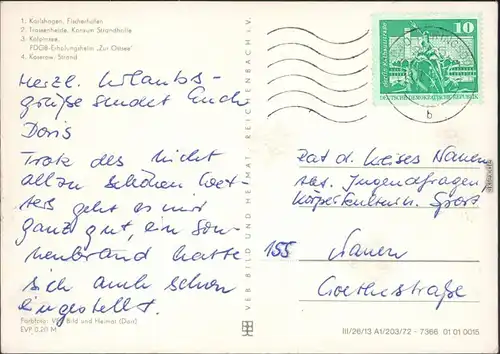 1. Karlshagen, Fischerhafen
2. Trassenheide, Konsum Strandhalle
3. Kölpinsee,
FDGB-Erholungsheim „Zur Ostsee"
4. Koserow, Strand
Herzl. Urlaubs-
grüße sendet Euch
Doris
Trotz des nicht
allzu schönen Wet-
ters geht es mir
ganz gut, ein Son-
nenbrand hatte
sich auch schon
eingestellt.
Farbfoto: VEB Bild und Heimat (Dari)
EVP 0,20 M
VEB BILD UND HEIMAT REICHENBACH i. V.
10
DEUTSCHE DEMOKRATISCHE REPUBLIK
b
Rat d. Kreises Nauen
Abt. Jugendfragen
Körperkultur u. Sport
155 Nauen
Goethestraße
III/26/13 A1/203/72 - 7366 01 01 0015